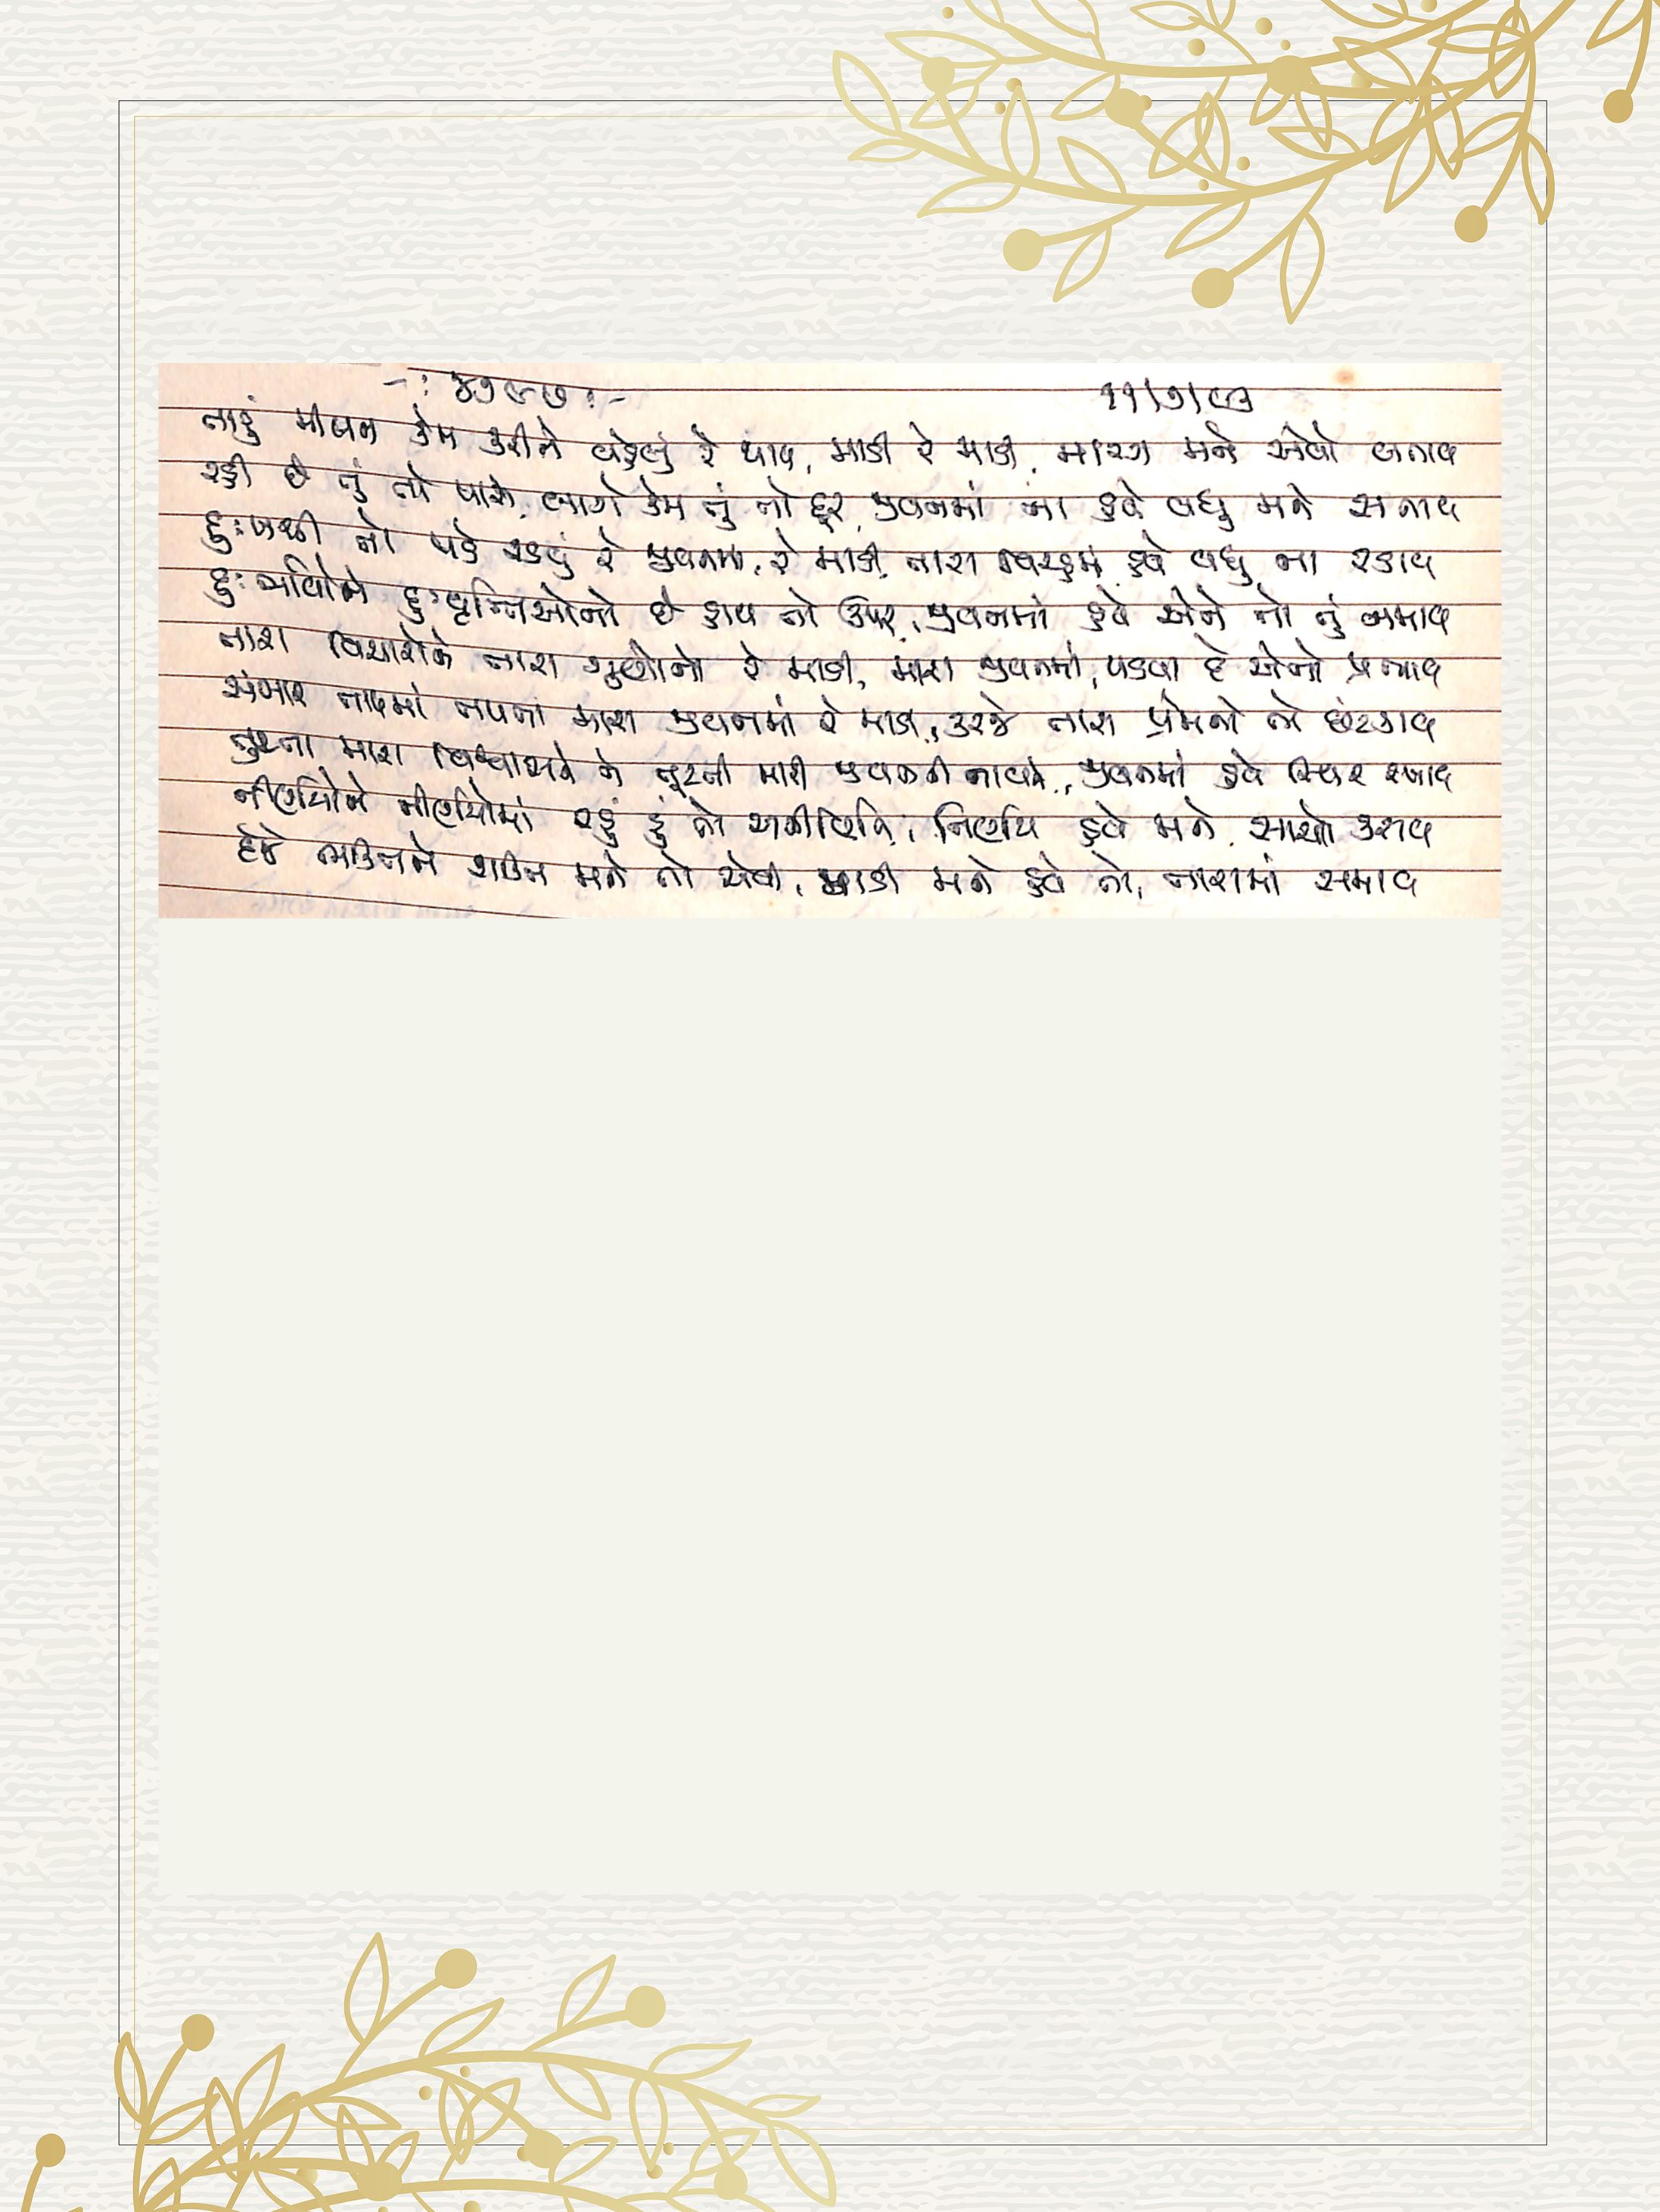 -: ૪૭૯૭ :- ૧૧/૭/૯૩
તારું મીલન કેમ કરીને વહેલું રે થાય, માડી રે માડી, મારગ મને એવો બતાવ
રહી છે તું તો પાસે, લાગે કેમ તું તો દૂર, જીવનમાં ના હવે વધુ મને સતાવ
દુઃખથી તો પડે રડવું રે જીવનમાં, રે માડી, તારા વિરહમાં હવે વધુ ના રડાવ
દુઃર્ભાવોને દુઃવૃત્તિઓનો છે હાથ તો ઉપર, જીવનમાં હવે એને તો તું નમાવ
તારા વિચારોને તારા ગુણોનો રે માડી, મારા જીવનમાં, પડવા દે એનો પ્રભાવ
સંસાર તાપમાં તપતા મારા જીવનમાં રે માડી, કરજે તારા પ્રેમનો તો છંટકાવ
તુટતા મારા વિશ્વાસને ને તૂટતી મારી જીવનની નાવને, જીવનમાં હવે સ્થિર રખાવ
નીર્ણયોને નીર્ણયોમાં રહું છું તો અનીર્ણિત, નિર્ણય હવે મને સાચો કરાવ
દેજે ભક્તિને શક્તિ મને તો એવી, માડી મને હવે તો, તારામાં સમાવ